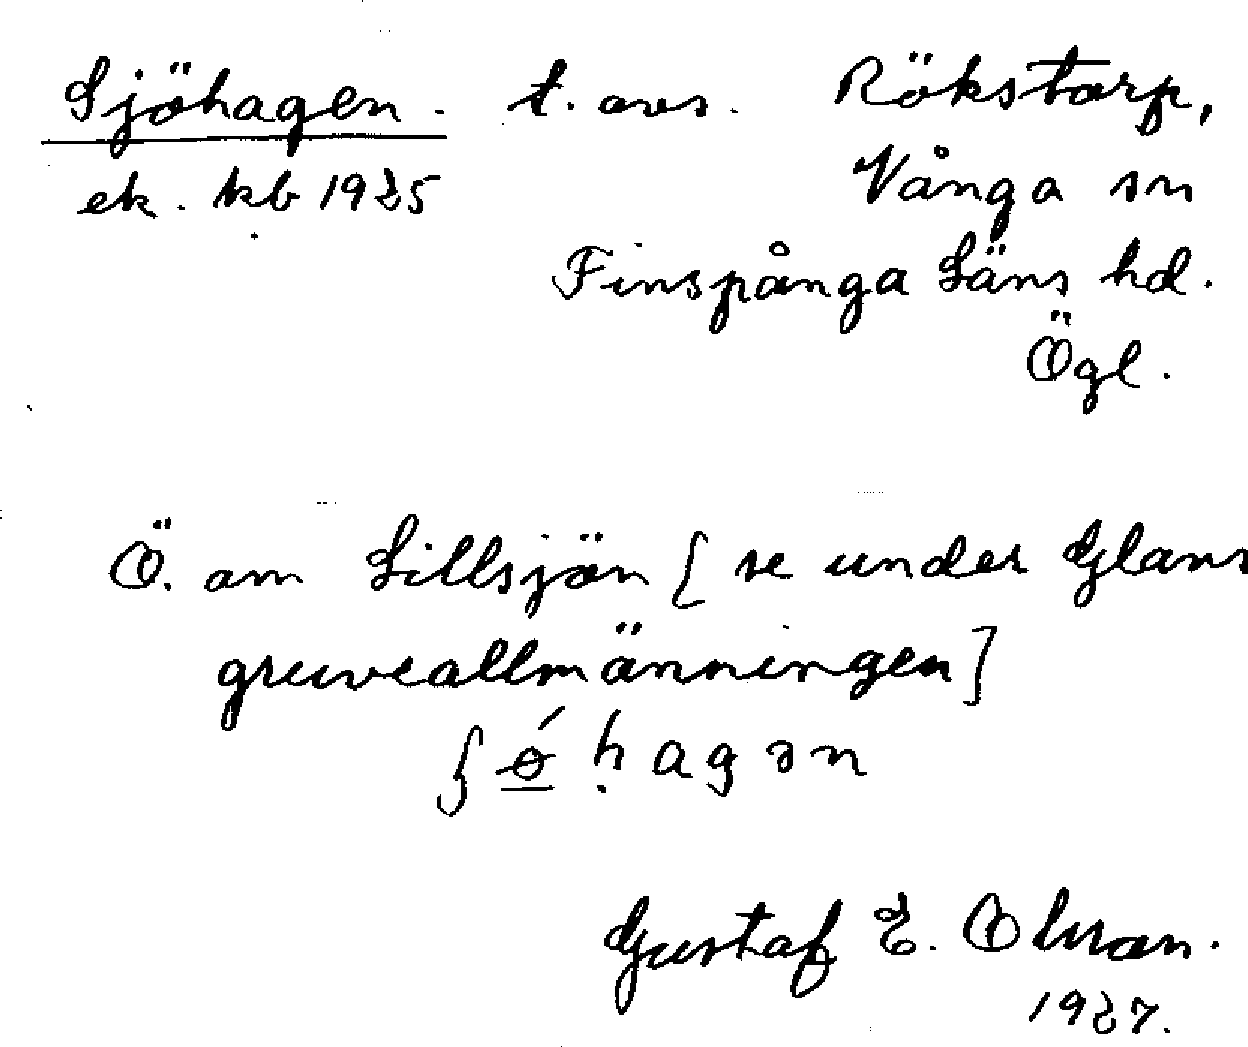 Sjöhagen. t. avs. Rökstorp,
ek. kb 1925 Vånga sn
Finspånga Läns hd.
Ögl.
Ö. om Lillsjön [se under Glans
gruveallmänningen]
ʃǿ ḥagən
Gustaf E. Olsson.
1927.